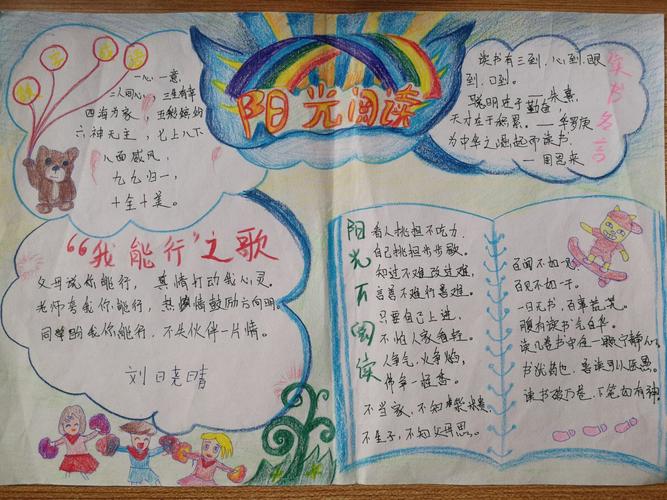 阳光阅读
一心一意，
二人同心，三生有幸
四海为家 五彩缤纷
六神无主，七上八下
八面威风，
九九归一，
十全十美。
读书名言
读书有三到，心到，眼
到，口到。
聪明在于勤奋 朱熹
天才在于积累。——华罗庚
为中华之崛起而读书。
——周恩来
“我能行”之歌
父母说你能行， 真情打动我心灵。
老师夸我你能行， 热情鼓励方向明。
同学助我你能行， 不失伙伴一片情。
刘日晓晴
阳光下阅读
看人挑担不吃力，
自己挑担步步歇。
知过不难改过难，
言善不难行善难。
只要自己上进，
不怕人家看轻。
人争气，火争焰，
佛争一炷香。
不当家，不知柴米贵
不生子，不知父母恩。
百闻不如一见
百见不如一干。
一日无书，百事荒芜。
腹有读书气自华。
读几卷书中在一颗宁静心。
书犹药也，善读可以医愚。
读书破万卷，下笔如有神。